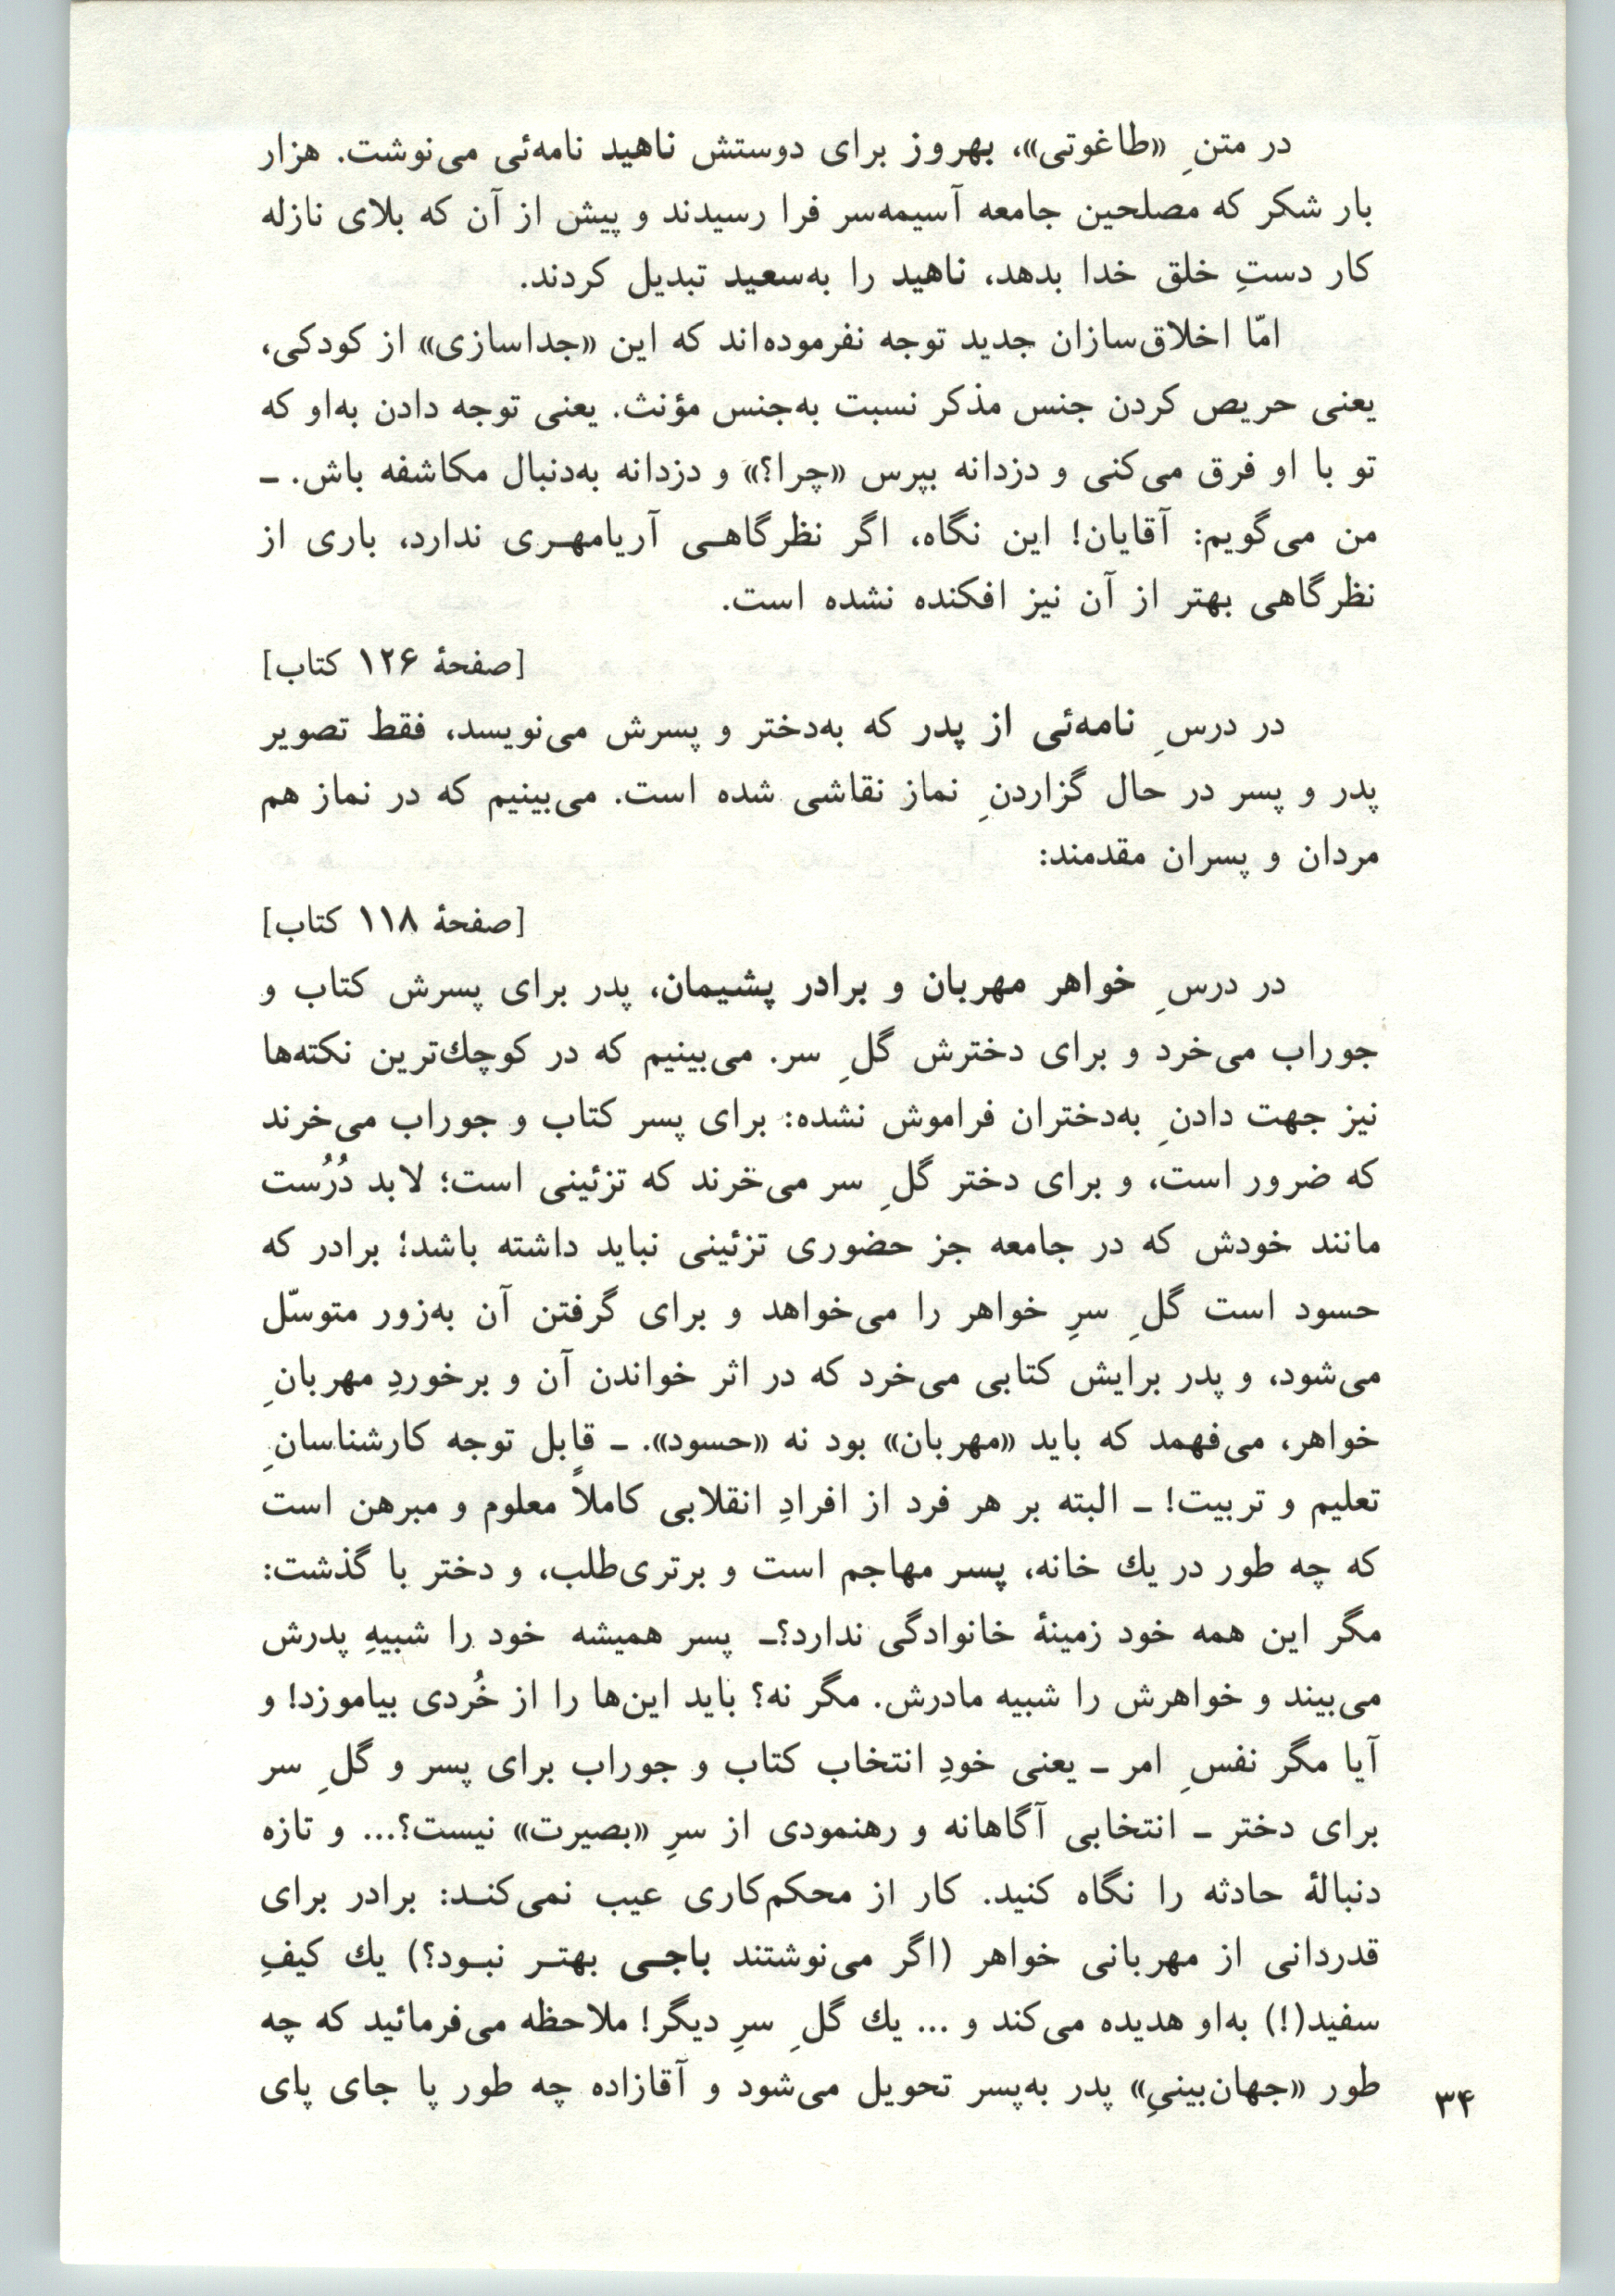 در متنِ «طاغوتی»، بهروز برای دوستش ناهید نامه‌ئی می‌نوشت. هزار
بار شکر که مصلحین جامعه آسیمه‌سر فرا رسیدند و پیش از آن که بلای نازله
کار دستِ خلق خدا بدهد، ناهید را به‌سعید تبدیل کردند.
امّا اخلاق‌سازان جدید توجه نفرموده‌اند که این «جداسازی» از کودکی،
یعنی حریص کردن جنس مذکر نسبت به‌جنس مؤنث. یعنی توجه دادن به‌او که
تو با او فرق می‌کنی و دزدانه بپرس «چرا؟» و دزدانه به‌دنبال مکاشفه باش. ـ
من می‌گویم: آقایان! این نگاه، اگر نظرگاهـی آریامهـری ندارد، باری از
نظرگاهی بهتر از آن نیز افکنده نشده است.
[صفحهٔ ۱۲۶ کتاب]
در درسِ نامه‌ئی از پدر که به‌دختر و پسرش می‌نویسد، فقط تصویر
پدر و پسر در حال گزاردنِ نماز نقاشی شده است. می‌بینیم که در نماز هم
مردان و پسران مقدمند:
[صفحهٔ ۱۱۸ کتاب]
در درسِ خواهر مهربان و برادر پشیمان، پدر برای پسرش کتاب و
جوراب می‌خرد و برای دخترش گلِ سر. می‌بینیم که در کوچك‌ترین نکته‌ها
نیز جهت دادنِ به‌دختران فراموش نشده: برای پسر کتاب و جوراب می‌خرند
که ضرور است، و برای دختر گلِ سر می‌خرند که تزئینی است؛ لابد دُرُست
مانند خودش که در جامعه جز حضوری تزئینی نباید داشته باشد؛ برادر که
حسود است گلِ سرِ خواهر را می‌خواهد و برای گرفتن آن به‌زور متوسّل
می‌شود، و پدر برایش کتابی می‌خرد که در اثر خواندن آن و برخوردِ مهربانِ
خواهر، می‌فهمد که باید «مهربان» بود نه «حسود». ـ قابل توجه کارشناسانِ
تعلیم و تربیت! ـ البته بر هر فرد از افرادِ انقلابی کاملاً معلوم و مبرهن است
که چه طور در یك خانه، پسر مهاجم است و برتری‌طلب، و دختر با گذشت:
مگر این همه خود زمینهٔ خانوادگی ندارد؟ـ پسر همیشه خود را شبیهِ پدرش
می‌بیند و خواهرش را شبیه مادرش. مگر نه؟ باید این‌ها را از خُردی بیاموزد! و
آیا مگر نفسِ امر ـ یعنی خودِ انتخاب کتاب و جوراب برای پسر و گلِ سر
برای دختر ـ انتخابی آگاهانه و رهنمودی از سرِ «بصیرت» نیست؟... و تازه
دنبالهٔ حادثه را نگاه کنید. کار از محکم‌کاری عیب نمی‌کنـد: برادر برای
قدردانی از مهربانی خواهر (اگر می‌نوشتند باجـی بهتـر نبـود؟) یك کیفِ
سفید(!) به‌او هدیده می‌کند و ... یك گلِ سرِ دیگر! ملاحظه می‌فرمائید که چه
طور «جهان‌بینیِ» پدر به‌پسر تحویل می‌شود و آقازاده چه طور پا جای پای
۳۴